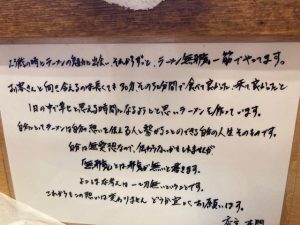 23歳の時とラーメンの魅力と出会い、それからずっと、ラーメン無邪気一筋でやってます。
お客さんと向き合えるのは長くても30分、その30分間で食べて良かった、来て良かったと
1日の中で幸せと思える時間になるようにと思いラーメンを作っています。
自分にとってラーメンは自分の想いを伝える人に繋げることのできる自分の人生そのものです。
自分は無愛想なので、伝わらないかもしれませんが
「無邪気」とは邪気が無いと書きます。
よこしまな考えは一切無いということです。
これからもこの想いは変わりません どうか宜しくお願いします。